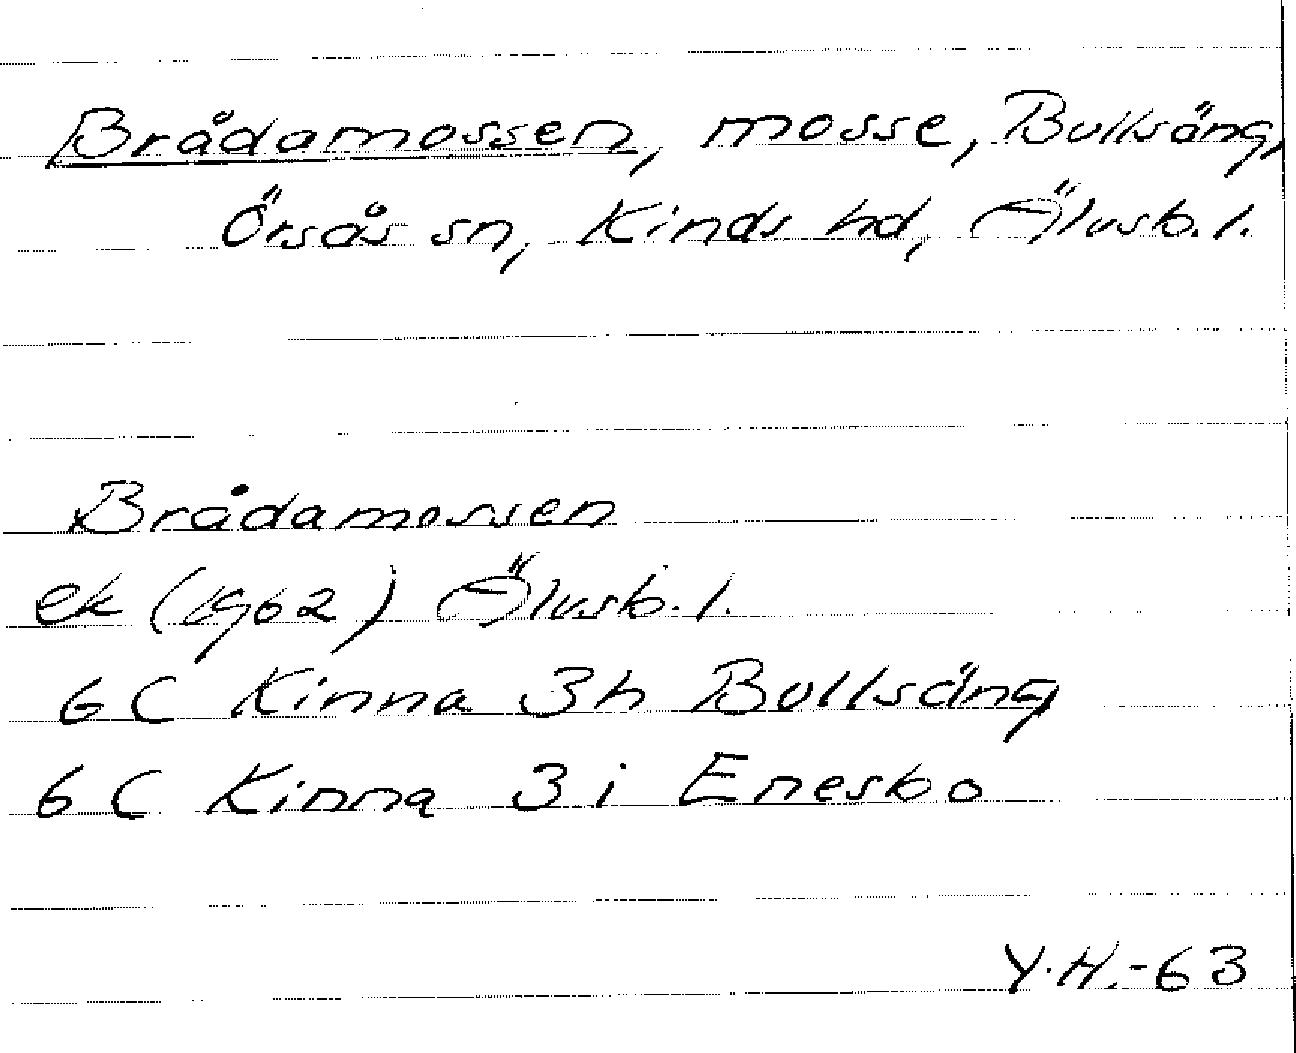 Brådamossen, mosse, Bullsäng,
Örsås sn, Kinds hd, Älvsb. l.
Brådamossen
ek (1962) Älvsb. l.
6 C Kinna 3h Bullsäng
6 C Kinna 3 i Enesbo
Y.H.-63